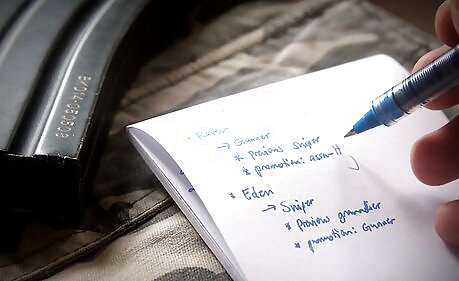 • Karen
→ Gunner
* Previous sniper
* promotion: assault
* Eden
→ Sniper
* Previous grenadier
* promotion: Gunner